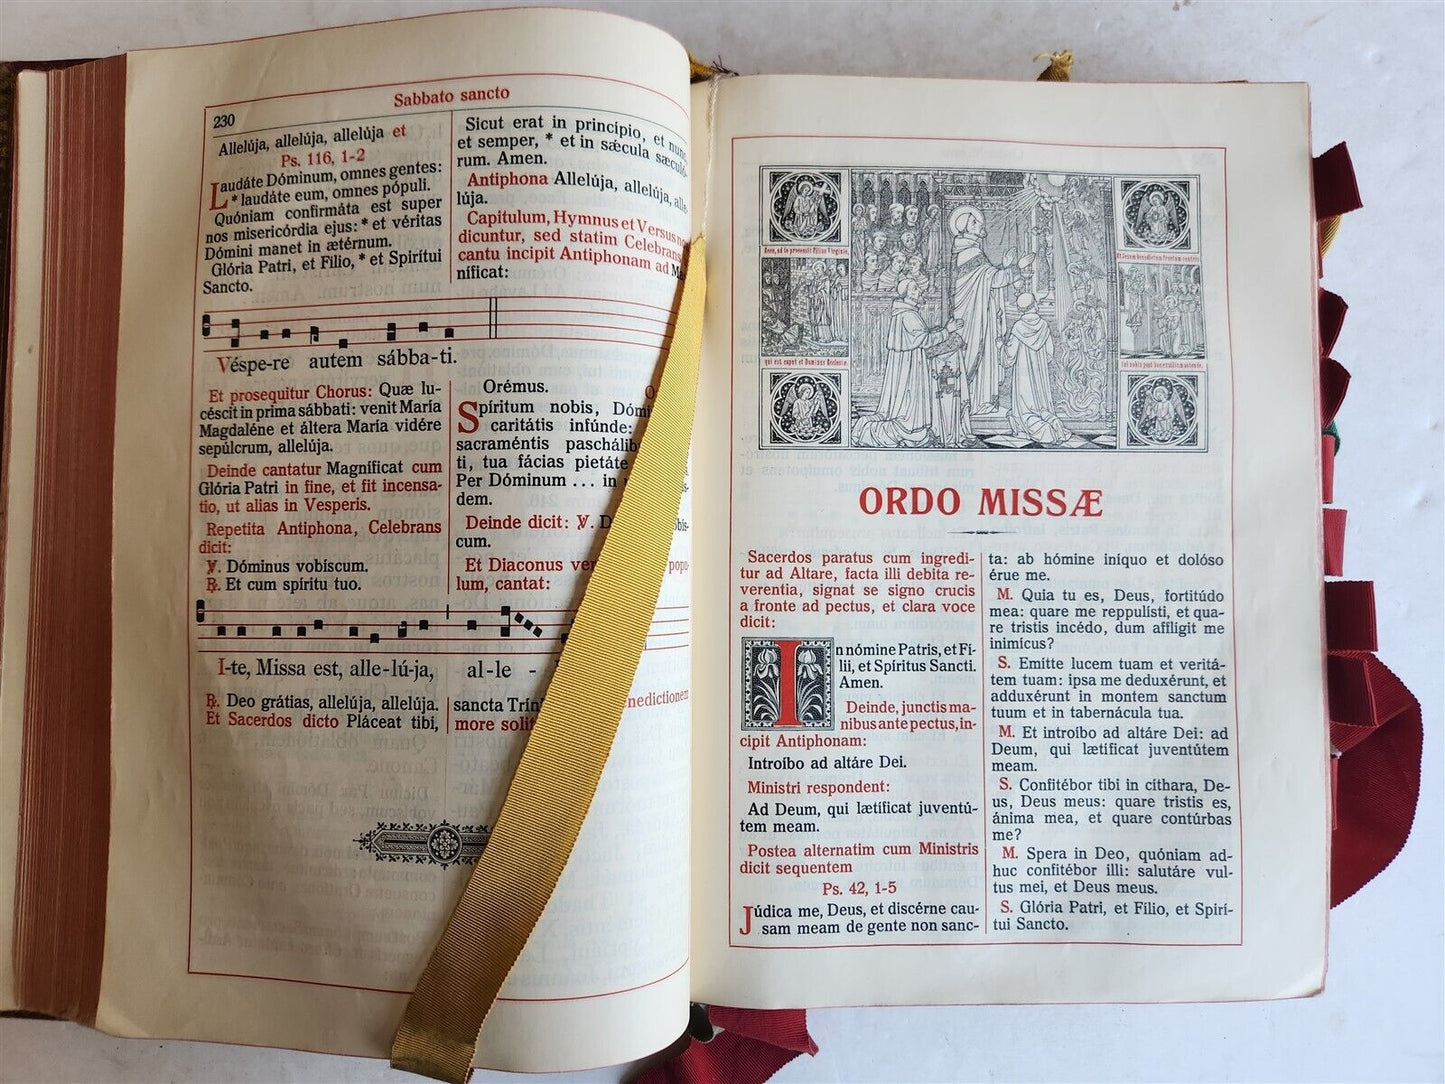 Sabbato sancto
230
Allelúja, allelúja, allelúja et
Ps. 116, 1-2
Laudáte Dóminum, omnes gentes:
* laudáte eum, omnes pópuli.
Quóniam confirmáta est super
nos misericórdia ejus: * et véritas
Dómini manet in ætérnum.
Glória Patri, et Fílio, * et Spirítui
Sancto.
Sicut erat in princípio, et nunc,
et semper, * et in sǽcula sæculó-
rum. Amen.
Antiphona Allelúja, allelúja, alle-
lúja.
Capitulum, Hymnus et Versus
dicuntur, sed statim Celebrans
cantu incipit Antiphonam ad
níficat:
Véspe-re autem sábba-ti.
Et prosequitur Chorus: Quæ lu-
céscit in prima sábbati: venit María
Magdaléne et áltera María vidére
sepúlcrum, allelúja.
Deinde cantatur Magníficat cum
Glória Patri in fine, et fit incensa-
tio, ut alias in Vesperis.
Repetita Antiphona, Celebrans
dicit:
℣. Dóminus vobíscum.
℟. Et cum spíritu tuo.
Orémus.
Spíritum nobis,
caritátis infúnde:
sacraméntis
ti, tua fácias pietáte
Per Dóminum ... in
dem.
Deinde dicit: ℣.
cum.
Et Diaconus
lum, cantat:
I-te, Missa est, alle-lú-ja, al-le -
℟. Deo grátias, allelúja, allelúja.
Et Sacerdos dicto Pláceat tibi,
sancta
more
ORDO MISSÆ
Ecce, ad te provenit Filius Virginis,
qui est caput et Dominus Ecclesiæ.
Sacerdos paratus cum ingredi-
tur ad Altare, facta illi debita re-
verentia, signat se signo crucis
a fronte ad pectus, et clara voce
dicit:
In nómine Patris, et Fí-
lii, et Spíritus Sancti.
Amen.
Deinde, junctis ma-
nibus ante pectus, in-
cipit Antiphonam:
Introíbo ad altáre Dei.
Ministri respondent:
Ad Deum, qui lætíficat juventú-
tem meam.
Postea alternatim cum Ministris
dicit sequentem
Ps. 42, 1-5
Júdica me, Deus, et discérne cau-
sam meam de gente non sanc-
ta: ab hómine iníquo et dolóso
érue me.
M. Quia tu es, Deus, fortitúdo
mea: quare me reppulísti, et qua-
re tristis incédo, dum afflígit me
inimícus?
S. Emítte lucem tuam et veritá-
tem tuam: ipsa me deduxérunt, et
adduxérunt in montem sanctum
tuum et in tabernácula tua.
M. Et introíbo ad altáre Dei: ad
Deum, qui lætíficat juventútem
meam.
S. Confitébor tibi in cíthara, De-
us, Deus meus: quare tristis es,
ánima mea, et quare contúrbas
me?
M. Spera in Deo, quóniam ad-
huc confitébor illi: salutáre vul-
tus mei, et Deus meus.
S. Glória Patri, et Fílio, et Spirí-
tui Sancto.